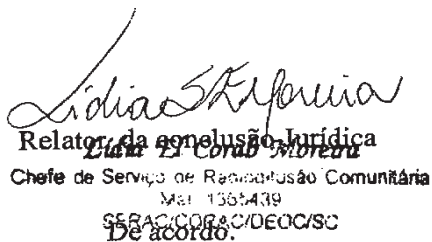 Lidia S El Moreira
Relator da conclusão Jurídica
Lídia El Corab Moreira
Chefe de Serviço de Radiodifusão Comunitária
Mat 1365439
SERAC/CORAC/DEOC/SC
De acordo.